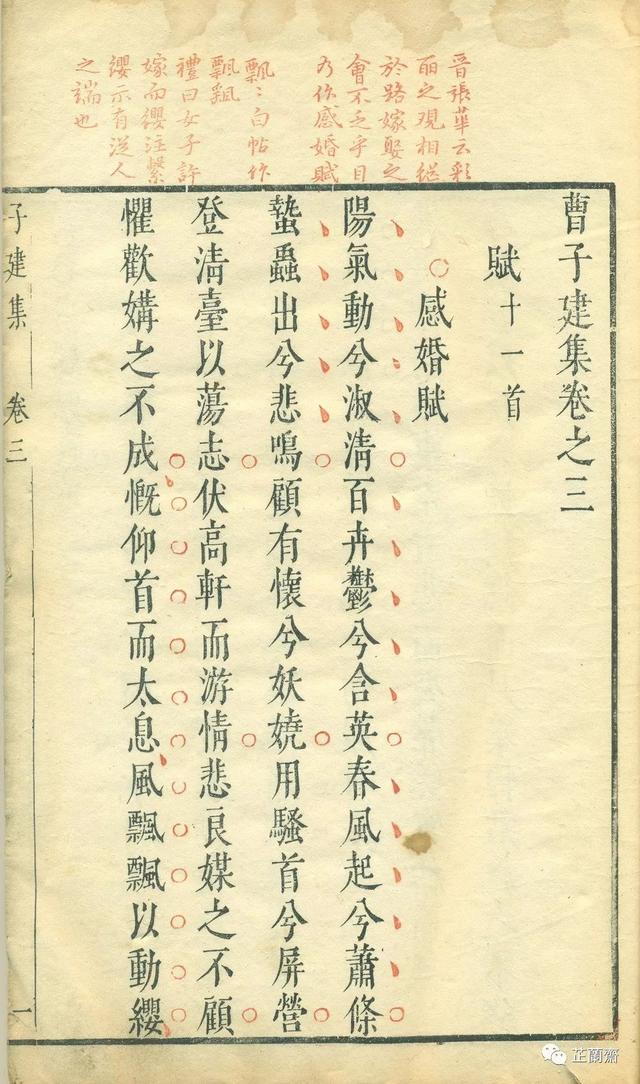 晉張華云彩
麗之观相継
於路嫁娶之
會不乏乎目
乃作感婚賦
飄〻白帖作
飄颻
禮曰女子許
嫁而纓注繫
纓示有從人
之端也
曹子建集卷之三
賦十一首
感婚賦
陽氣動兮淑清百卉鬱兮含英春風起兮蕭條
蟄蟲出兮悲鳴顧有懷兮妖嬈用騷首兮屏營
登清臺以蕩志伏高軒而游情悲良媒之不顧
懼歡媾之不成慨仰首而太息風飄飄以動纓
子建集
卷三
一
芷蘭齋